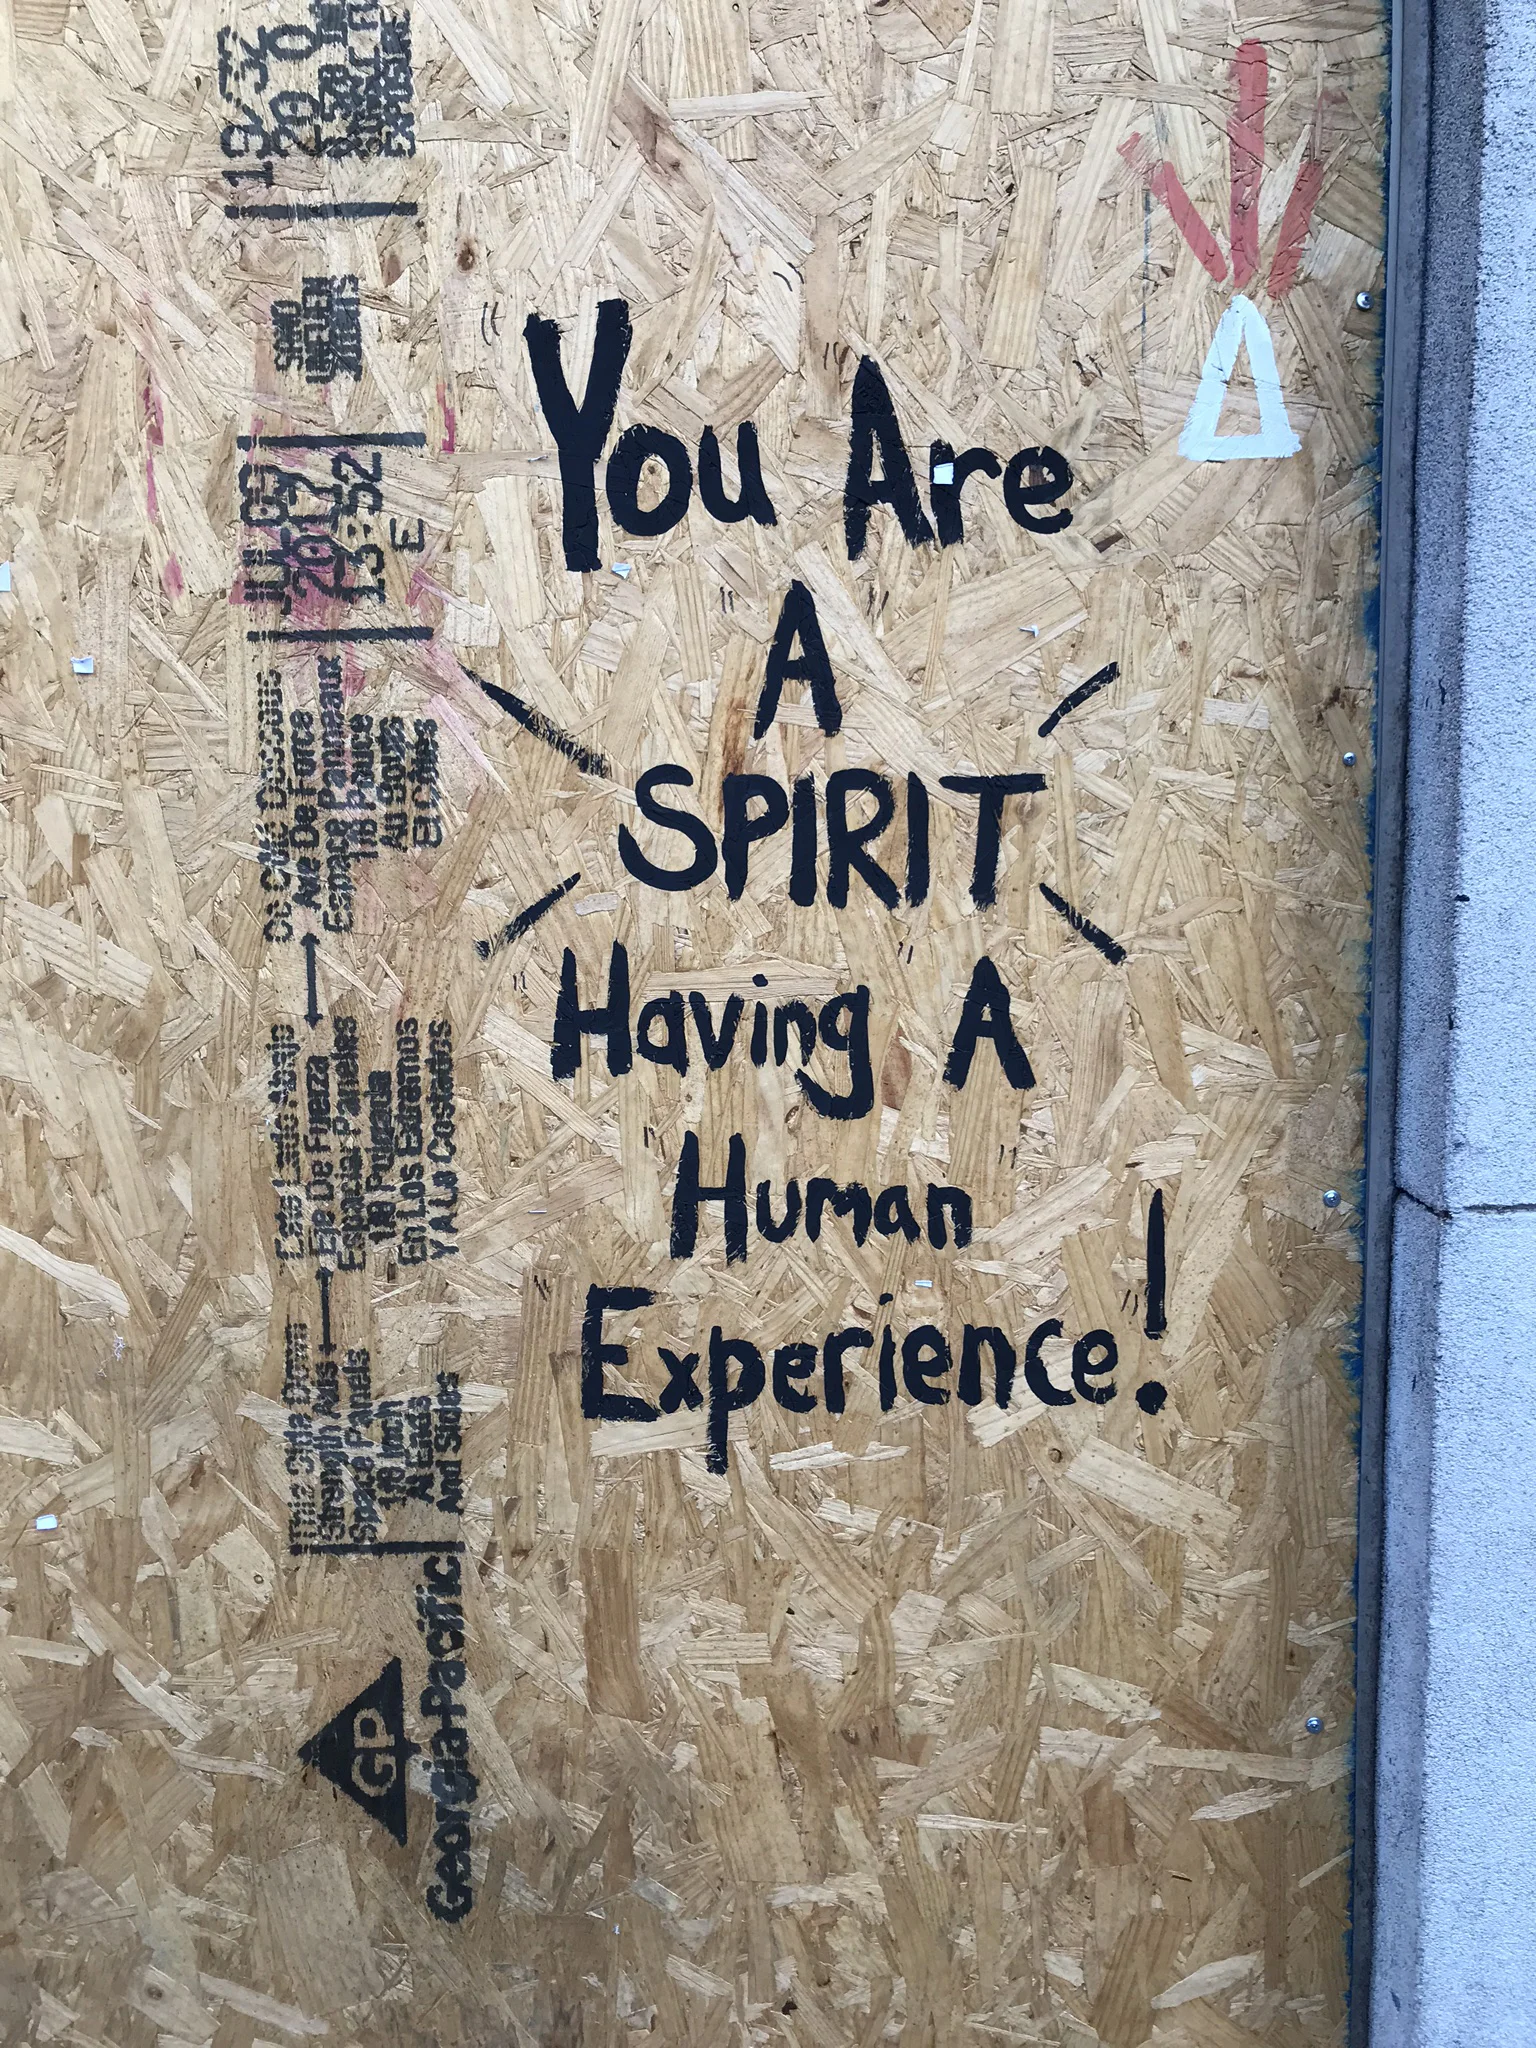 You Are
A
SPIRIT
Having A
Human
Experience!
GP
Georgia-Pacific
This Side Down
Strength Axis
Space Panels
1/8 Inch
At Ends
And Sides
Este Lado Abajo
Eje De Fuerza
Espaciar Paneles
1/8 Pulgada
En Los Extremos
Y A Lo Costados
Ce Côté Dessous
Axe De Force
Espace Panneaux
1/8 Pouce
Au Bouts
Et Côtes
2017
13:52
E